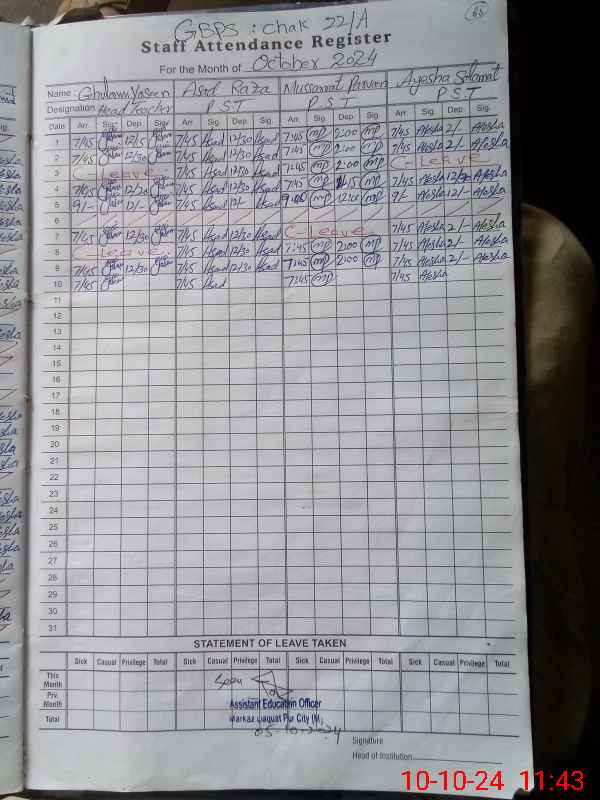 65
GBPS: Chak 22/A
Staff Attendance Register
For the Month of October 2024
Name: Ghulam Yaseen Asad Raza Mussamat Parveen Ayesha Salamat
Designation Head Teacher P.S.T P.S.T P.S.T
Date Arr. Sig. Dep. Sig. Arr. Sig. Dep. Sig. Arr. Sig. Dep. Sig. Arr. Sig. Dep. Sig.
1 7/45 12/5 7/45 Asad 12/30 Asad 7:45 mp 2:00 mp 7/45 Aiesha 2/- Aiesha
2 7/45 12/30 7/45 Asad 12/30 Asad 7:45 mp 2:00 mp 7/45 Aiesha 2/- Aiesha
3 C-Leave 7/45 Asad 12/30 Asad 7:45 mp 2:00 mp C-Leave
4 7/45 12/20 7/45 Asad 12/30 Asad 7:45 mp mp 7/45 Aiesha 12/30 Aiesha
5 9/- 12/- 7/45 Asad 12/- Asad 9:00 mp 12:00 mp 9/- Aiesha 12/- Aiesha
6
7 7/45 12/30 7/45 Asad 12/30 Asad C-Leave 7/45 Aiesha 2/- Aiesha
8 C-Leave 7/45 Asad 12/30 Asad 7:45 mp 2:00 mp 7/45 Aiesha 2/- Aiesha
9 7/45 12/30 7/45 Asad 12/30 Asad 7:45 mp 2:00 mp 7/45 Aiesha 2/- Aiesha
10 7/45 7/45 Asad 7:45 mp 7/45 Aiesha
11
12
13
14
15
16
17
18
19
20
21
22
23
24
25
26
27
28
29
30
31
STATEMENT OF LEAVE TAKEN
Sick Casual Privilege Total Sick Casual Privilege Total Sick Casual Privilege Total Sick Casual Privilege Total
This Month
Prv. Month
Total
Seen
Assistant Education Officer
Markaz Liaquat Pur City (M)
05-10-2024
Signature
Head of Institution
10-10-24 11:43